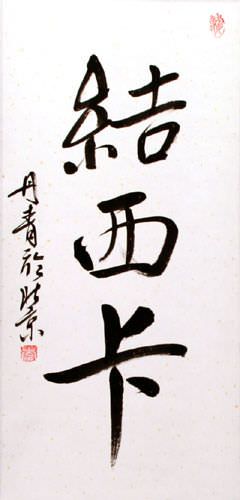 結西卡
丹青於北京